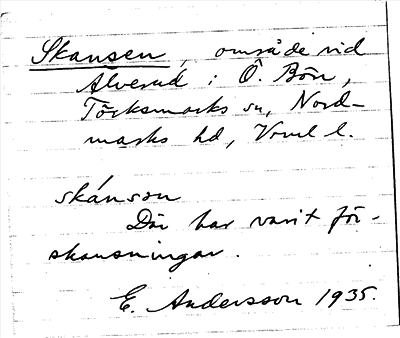 Skansen, område vid
Alverud i Ö. Bön,
Töcksmarks sn, Nord-
marks hd, Vrml l.
skánsən
Där har varit för-
skansningar.
E. Andersson 1935.